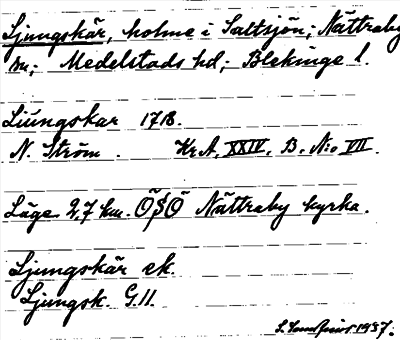 Ljungskär, holme i Saltsjön; Nättraby
sn; Medelstads hd; Blekinge l.
Liungskar 1718.
N. Ström. Kr A. XXIV. B. N:o VII.
Läge 2,7 km. ÖSÖ Nättraby kyrka.
Ljungskär ek.
Ljungsk. G.11.
1937.